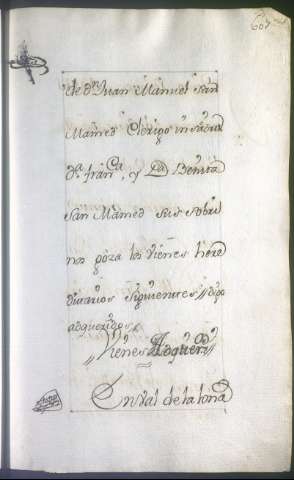 607
de Dn Juan Manuel San
Mamed Clerigo in sacris
Da. franca. y Da Benita
San Mamed sus sobri
nos goza los vienes here
ditarios siguientes // digo
adqueridos //
// Vienes Adqueridos //
En Val de la lona